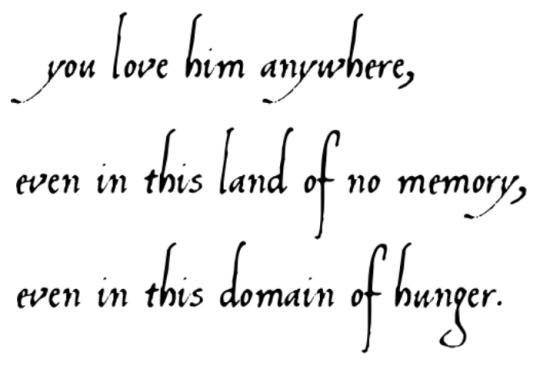 you love him anywhere,
even in this land of no memory,
even in this domain of hunger.